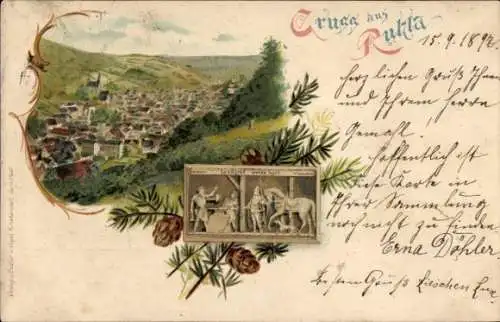 Gruss aus
Ruhla
15.9.1897
herzlichen Gruß Ihnen
und Ihrem Herrn
Gemahl!
Hoffentlich ist
diese Karte in
Ihrer Sammlung
noch nicht zu finden
Erna Döhler
Besten Gruß